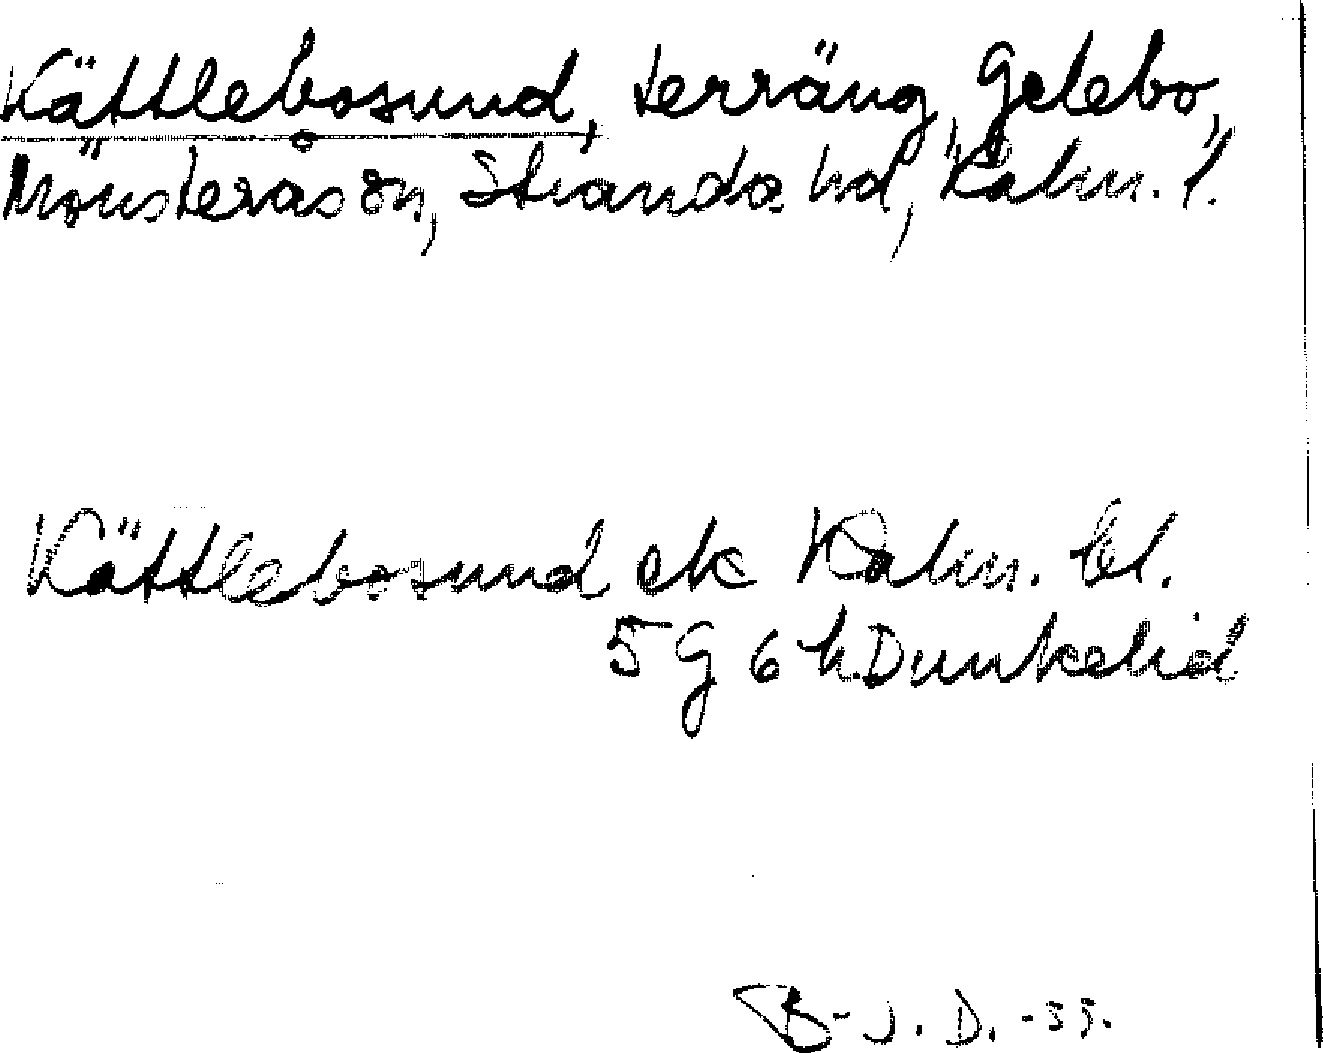 Kättlebosund, terräng, Gelebo,
Mönsterås sn, Stranda hd, Kalm. l.
Kättlebosund ek Kalm. bl.
5 G 6 h. Dunkelid
B-J. D. -55.